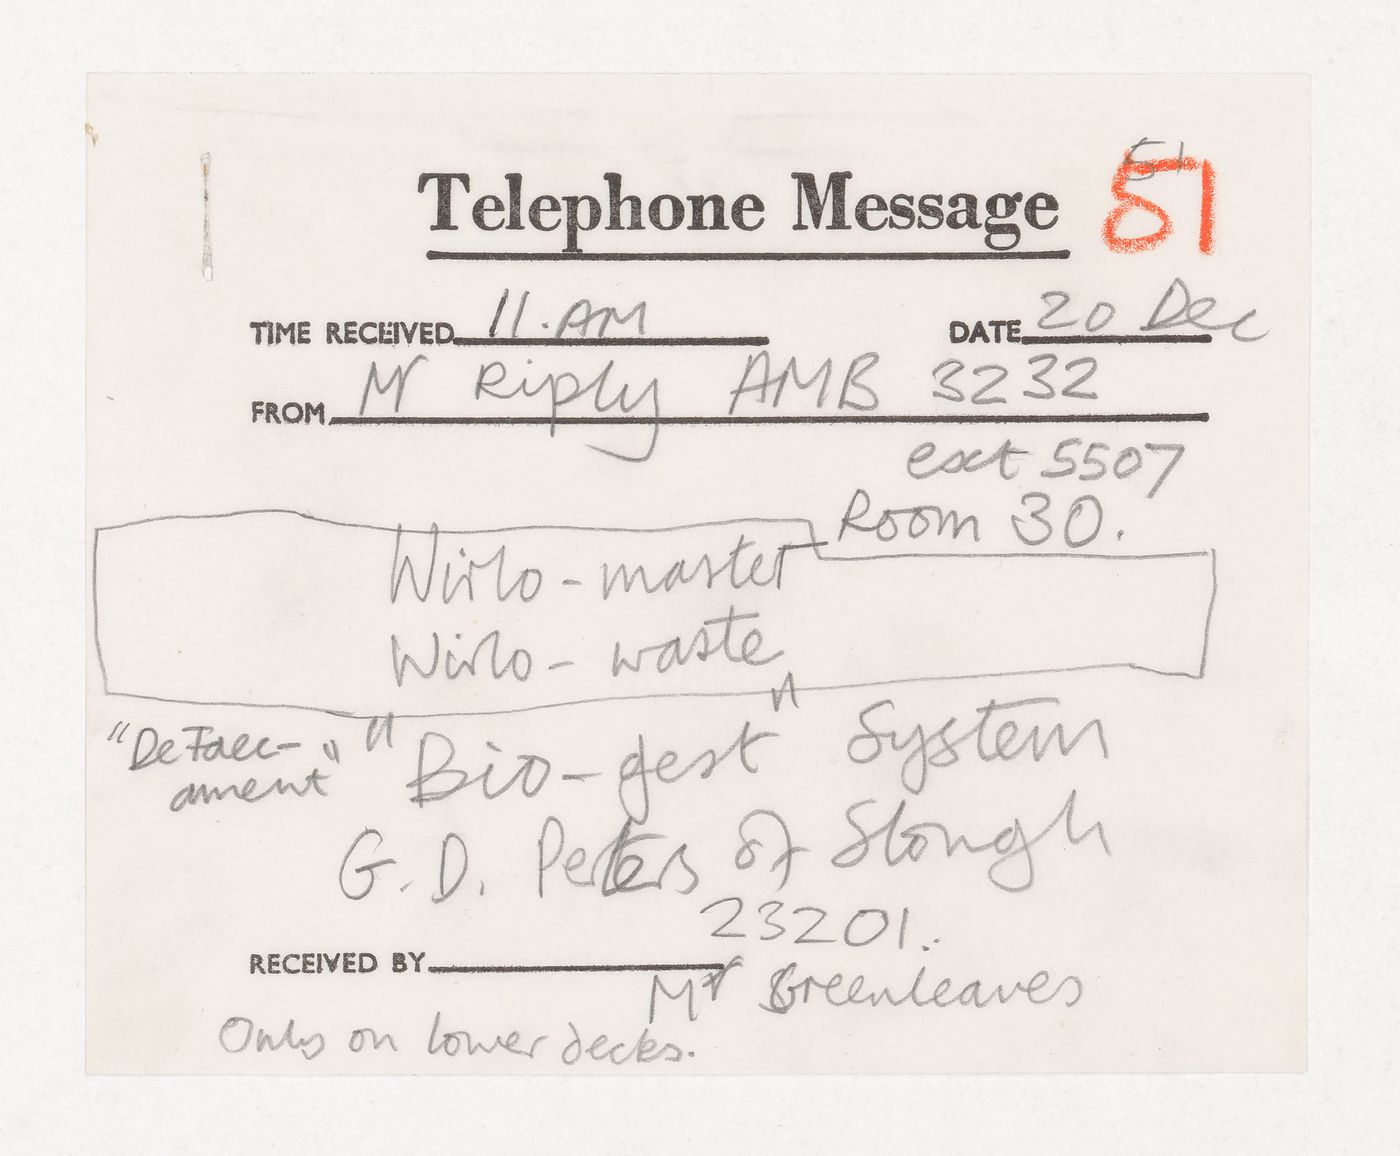 51
Telephone Message 51
TIME RECEIVED 11.AM DATE 20 Dec
FROM Mr Riply AMB 3232
ext 5507
Room 30.
Wirlo-master
Wirlo-waste
"DeFaec-
ament" "Bio-gest" System
G.D. Peters of Slough
23201.
RECEIVED BY
Mr Greenleaves
Only on lower decks.